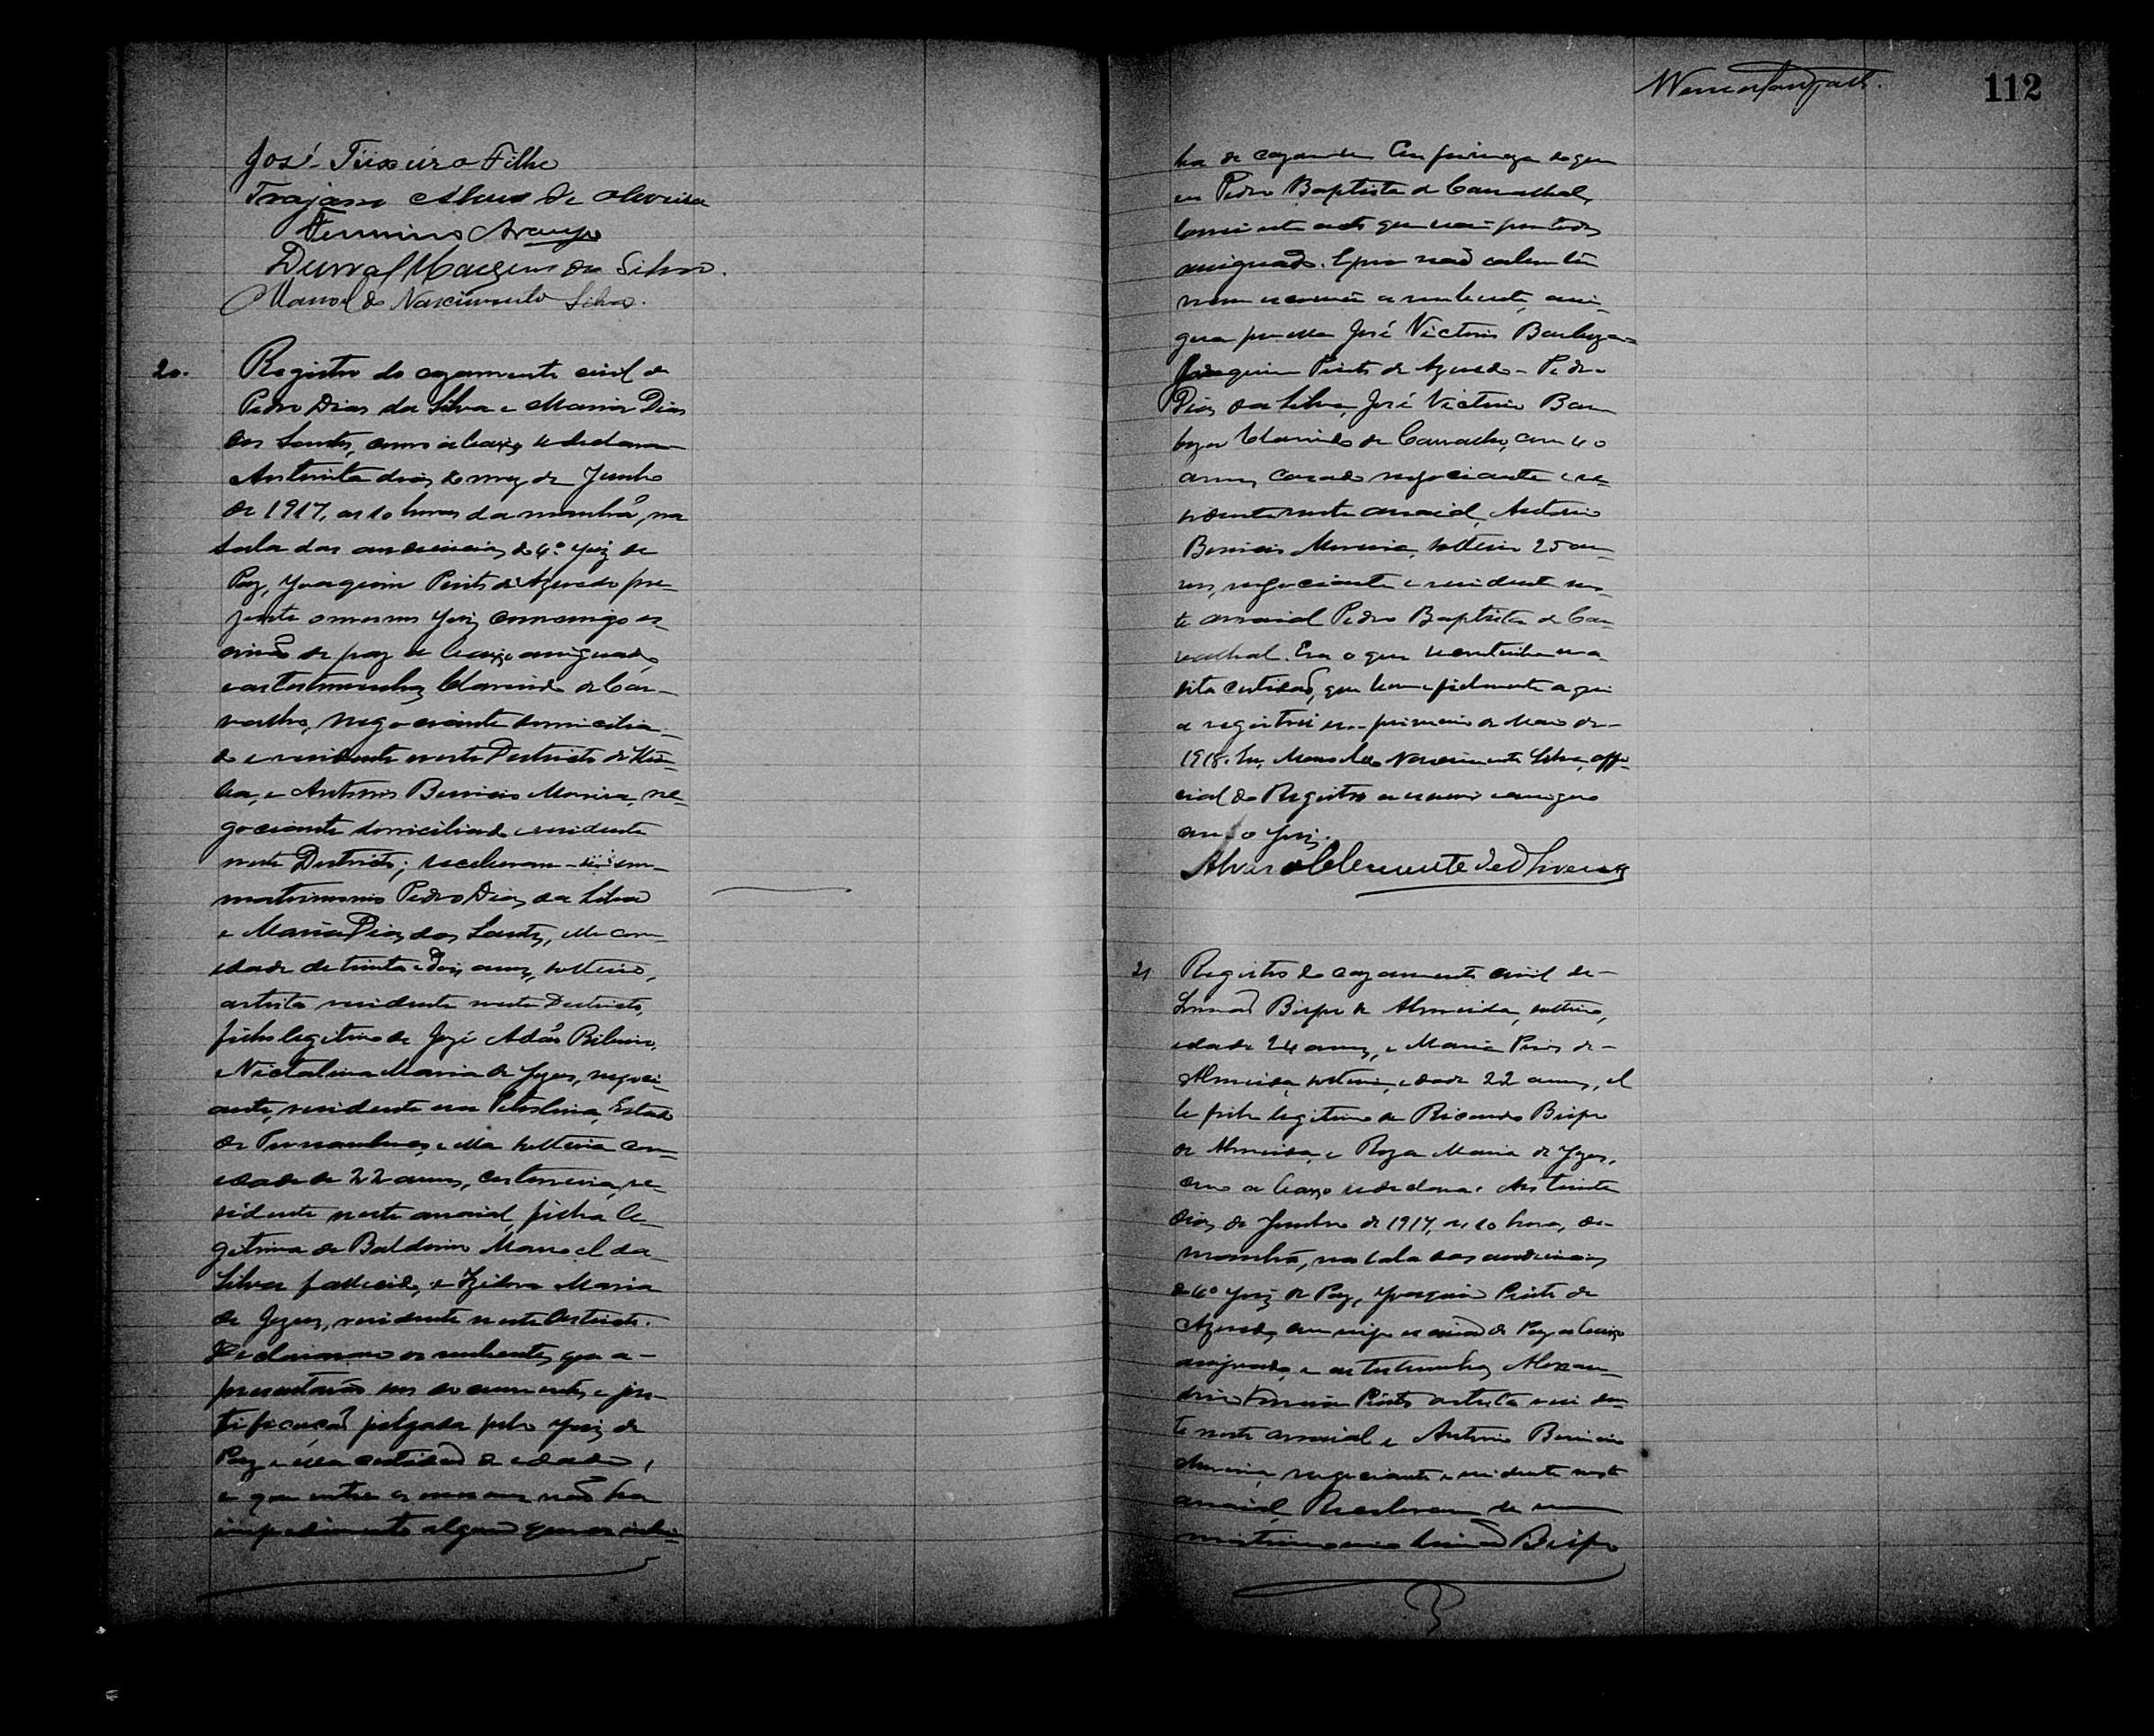 José Teixeira Filho
Trajano Alves de Oliveira
Firmino Araujo
Durval Marques da Silva.
Manoel do Nascimento Silva.
20. Registro do cazamento civil de
Pedro Dias da Silva e Maria Dias
dos Santos, como abaixo se declara
Aos trinta dias do mez de Junho
de 1917, as 10 horas da manhã, na
sala das audiencias do 4º Juiz de
Paz, Joaquim Pinto de Azevedo pre-
zente o mesmo Juiz commigo es-
crivão de paz abaixo assignado,
e as testemunhas Clarindo de Car-
valho, negociante domicilia-
do e residente neste Districto de
e Antonio Moreira, ne-
gociante domiciliado e residente
neste Districto; receberam-se em
matrimonio Pedro Dias da Silva
e Maria Dias dos Santos, elle com
edade de trinta e dois annos, solteiro,
artista residente neste Districto,
filho legitimo de José Adão Ribeiro,
e Maria de Jezus, negoci-
ante, residente em Petrolina, Estado
de Pernambuco, e ella solteira com
edade de 22 annos, costureira, re-
sidente neste arraial, filha le-
gitima de Balduino Manoel da
Silva fallecido, e Maria
de Jezus, residente neste Districto.
Declararam os nubentes, que a-
presentarão seus documentos e jus-
tificação julgada pelo Juiz de
Paz e certidão de edade,
e que entre os mesmos não ha
impedimento algum que os
112
ha de cazarem. Em firmeza do que
eu Pedro Baptista de Carvalhal,
lavrei este acto que vai por todos
assignado. E por não saber ler
nem escrever a nubente, assi-
gna por ella José Victorio Barboza-
Joaquim Pinto de Azevedo - Pedro
Dias da Silva, José Victorio Bar-
boza Clarindo de Carvalho, com 40
annos casado negociante e re-
zidente neste arraial, Antonio
Moreira, solteiro 25 an-
nos, negociante e residente nes-
te arraial Pedro Baptista de Car-
valhal. Era o que se continha na
dita certidão, que bem e fielmente aqui
a registrei em primeiro de Maio de
1918. Eu, Manoel do Nascimento Silva, offi-
cial do Registro o escrevi e assigno
com o Juiz.
Alvaro Clemente de Oliveira
21 Registro do cazamento civil de
Bispo de Almeida, solteiro,
edade 24 annos, e Maria Pires de
Almeida, solteira, edade 22 annos, el-
le filho legitimo de Ricardo Bispo
de Almeida, e Roza Maria de Jezus,
como abaixo se declara. Aos trinta
dias de Junho de 1917, as 10 horas, da
manhã, na sala das audiencias
do 4º Juiz de Paz, Joaquim Pinto de
Azevedo, commigo escrivão de Paz abaixo
assignado, e as testemunhas Alexan-
dre Pinto artista residen-
te neste arraial e Antonio
Moreira, negociante e residente neste
arraial Receberam-se em
matrimonio Bispo